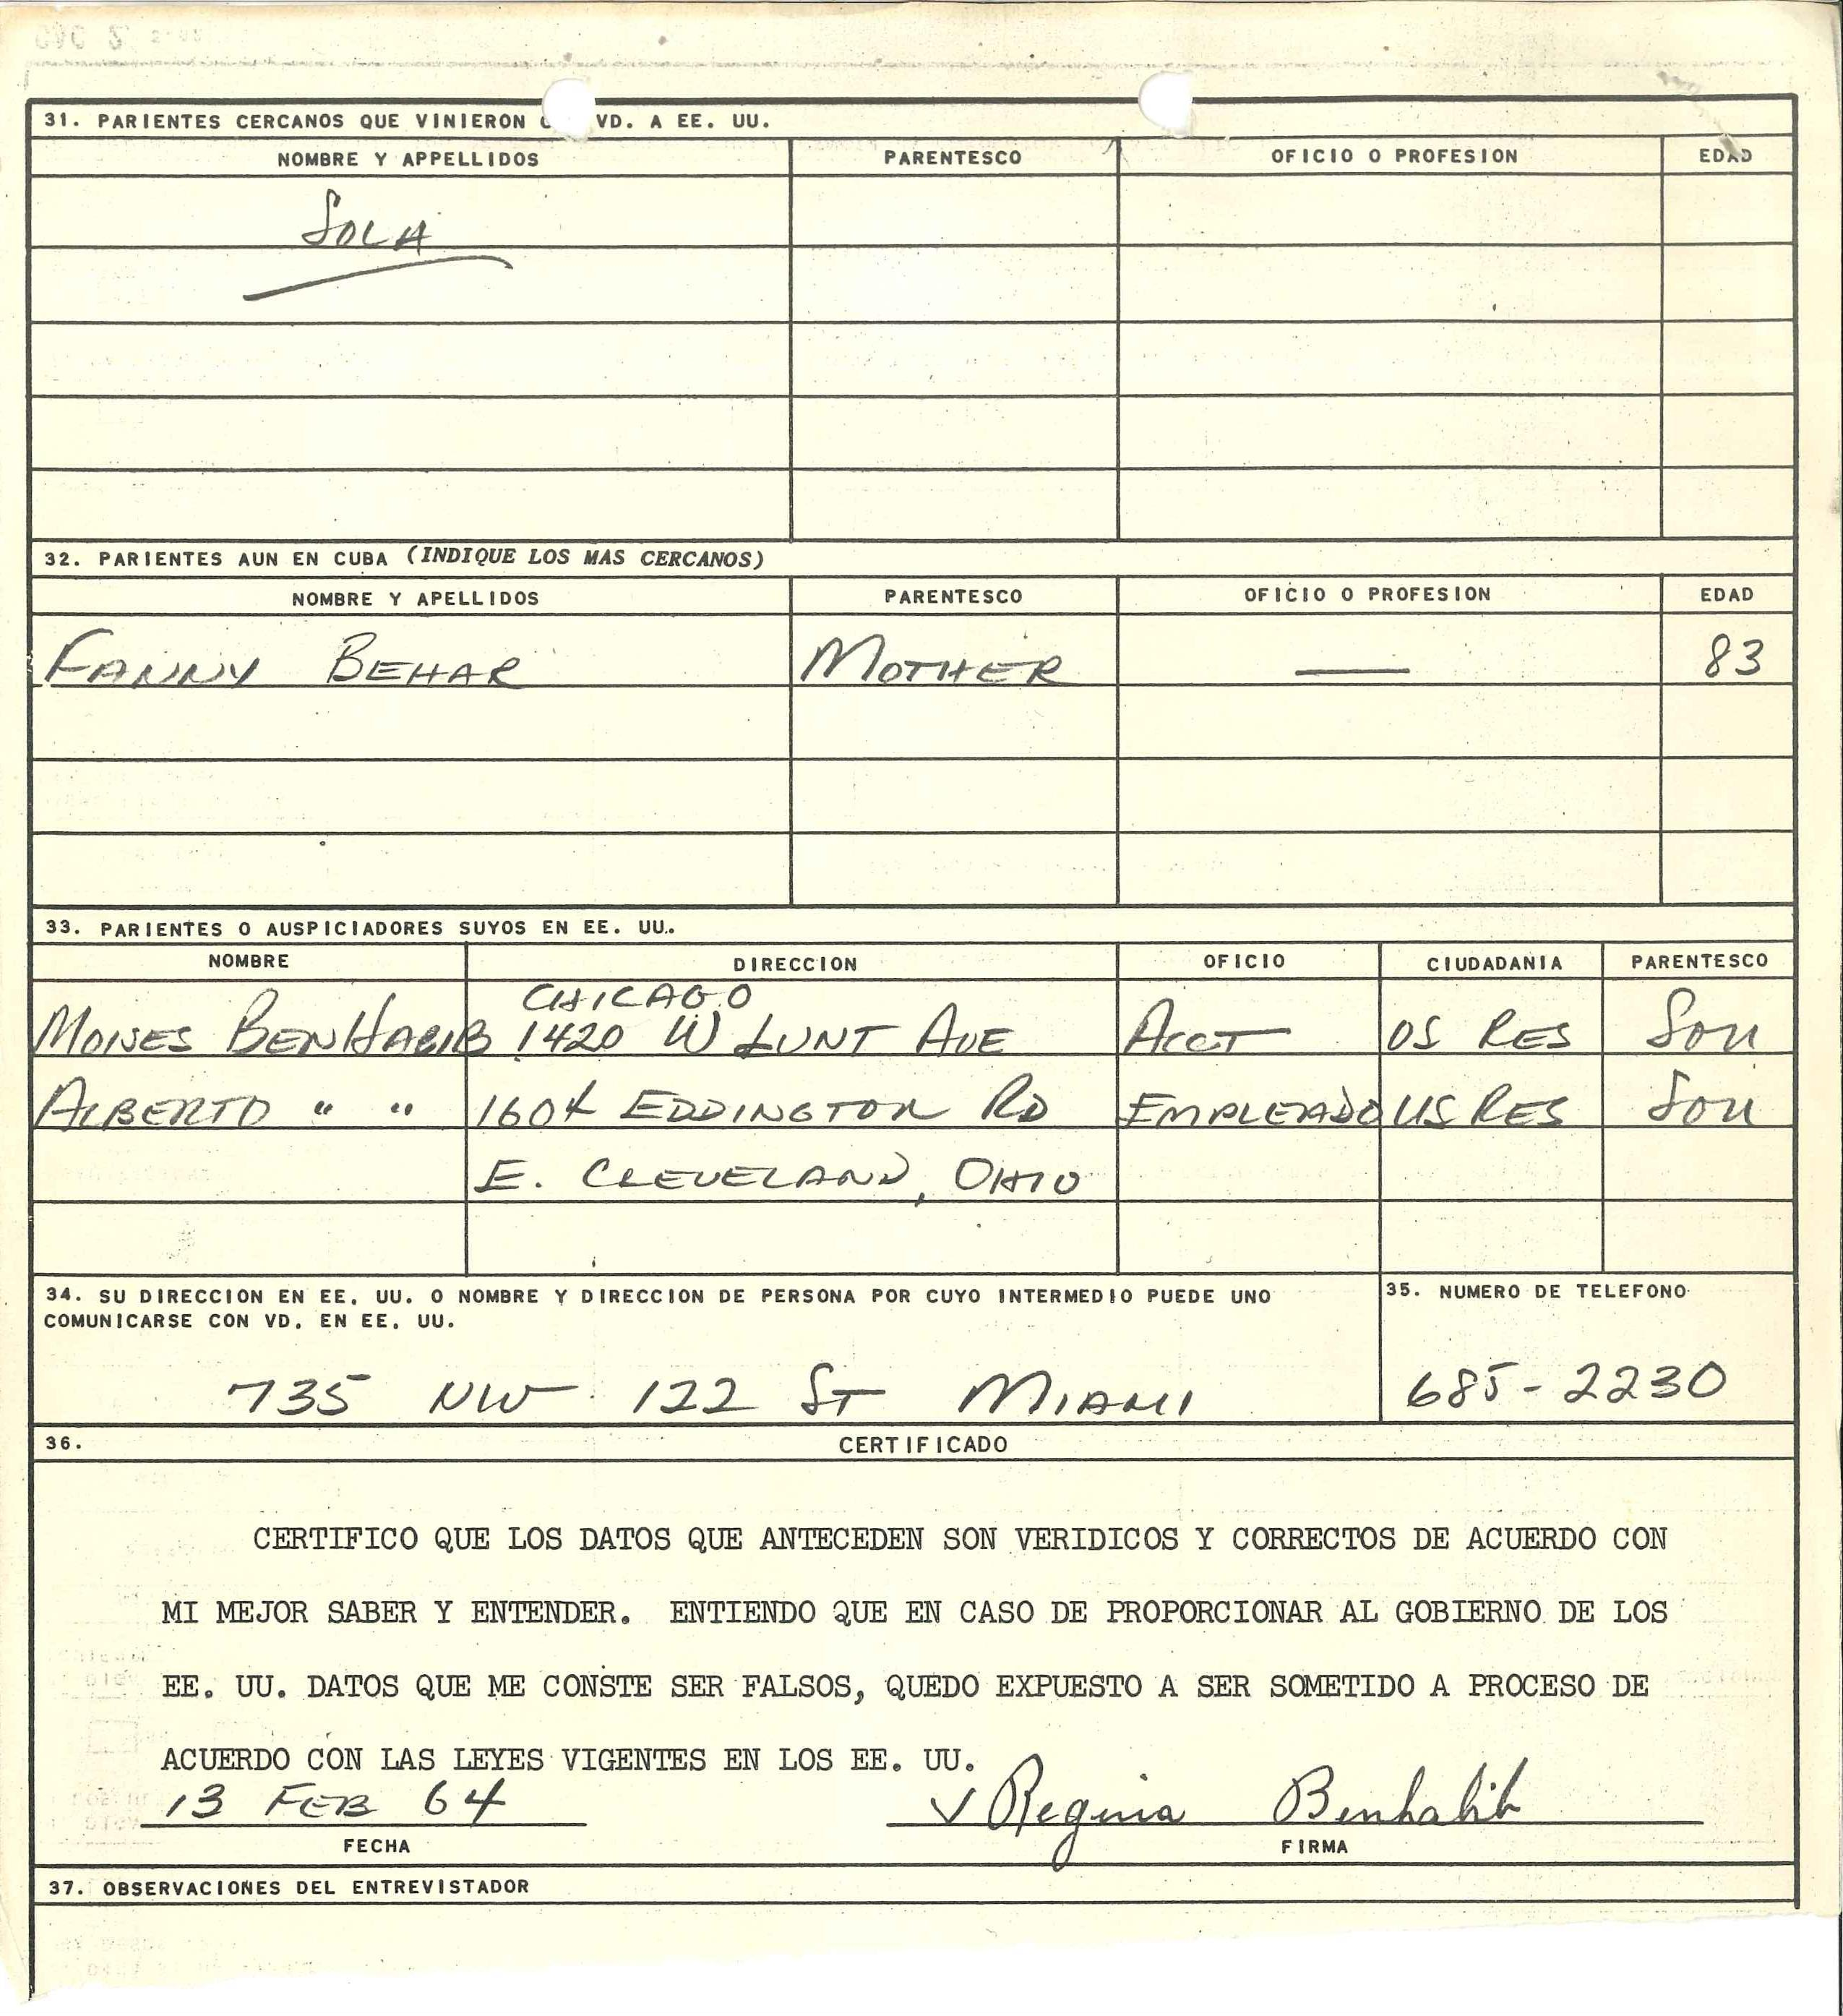 31. PARIENTES CERCANOS QUE VINIERON VD. A EE. UU.
NOMBRE Y APPELLIDOS PARENTESCO OFICIO O PROFESION EDAD
SOLA
32. PARIENTES AUN EN CUBA (INDIQUE LOS MAS CERCANOS)
NOMBRE Y APELLIDOS PARENTESCO OFICIO O PROFESION EDAD
FANNY BEHAR MOTHER — 83
33. PARIENTES O AUSPICIADORES SUYOS EN EE. UU.
NOMBRE DIRECCION OFICIO CIUDADANIA PARENTESCO
CHICAGO
MOISES BENHABIB 1420 W LUNT AVE ACCT US RES SON
ALBERTO " " 1604 EDDINGTON RD EMPLEADO US RES SON
E. CLEVELAND, OHIO
34. SU DIRECCION EN EE. UU. O NOMBRE Y DIRECCION DE PERSONA POR CUYO INTERMEDIO PUEDE UNO
COMUNICARSE CON VD. EN EE. UU.
35. NUMERO DE TELEFONO
735 NW 122 ST MIAMI 685-2230
36. CERTIFICADO
CERTIFICO QUE LOS DATOS QUE ANTECEDEN SON VERIDICOS Y CORRECTOS DE ACUERDO CON
MI MEJOR SABER Y ENTENDER. ENTIENDO QUE EN CASO DE PROPORCIONAR AL GOBIERNO DE LOS
EE. UU. DATOS QUE ME CONSTE SER FALSOS, QUEDO EXPUESTO A SER SOMETIDO A PROCESO DE
ACUERDO CON LAS LEYES VIGENTES EN LOS EE. UU.
13 FEB 64 Regina Benhabib
FECHA FIRMA
37. OBSERVACIONES DEL ENTREVISTADOR